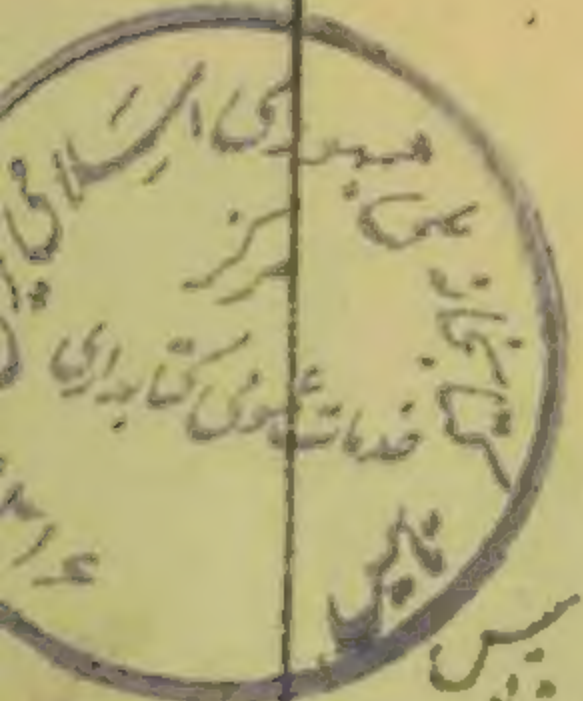 کتابخانه ملی جمهوری اسلامی
مرکز
خدمات عمومی کتابداری
تاسیس
۱۳۱۶